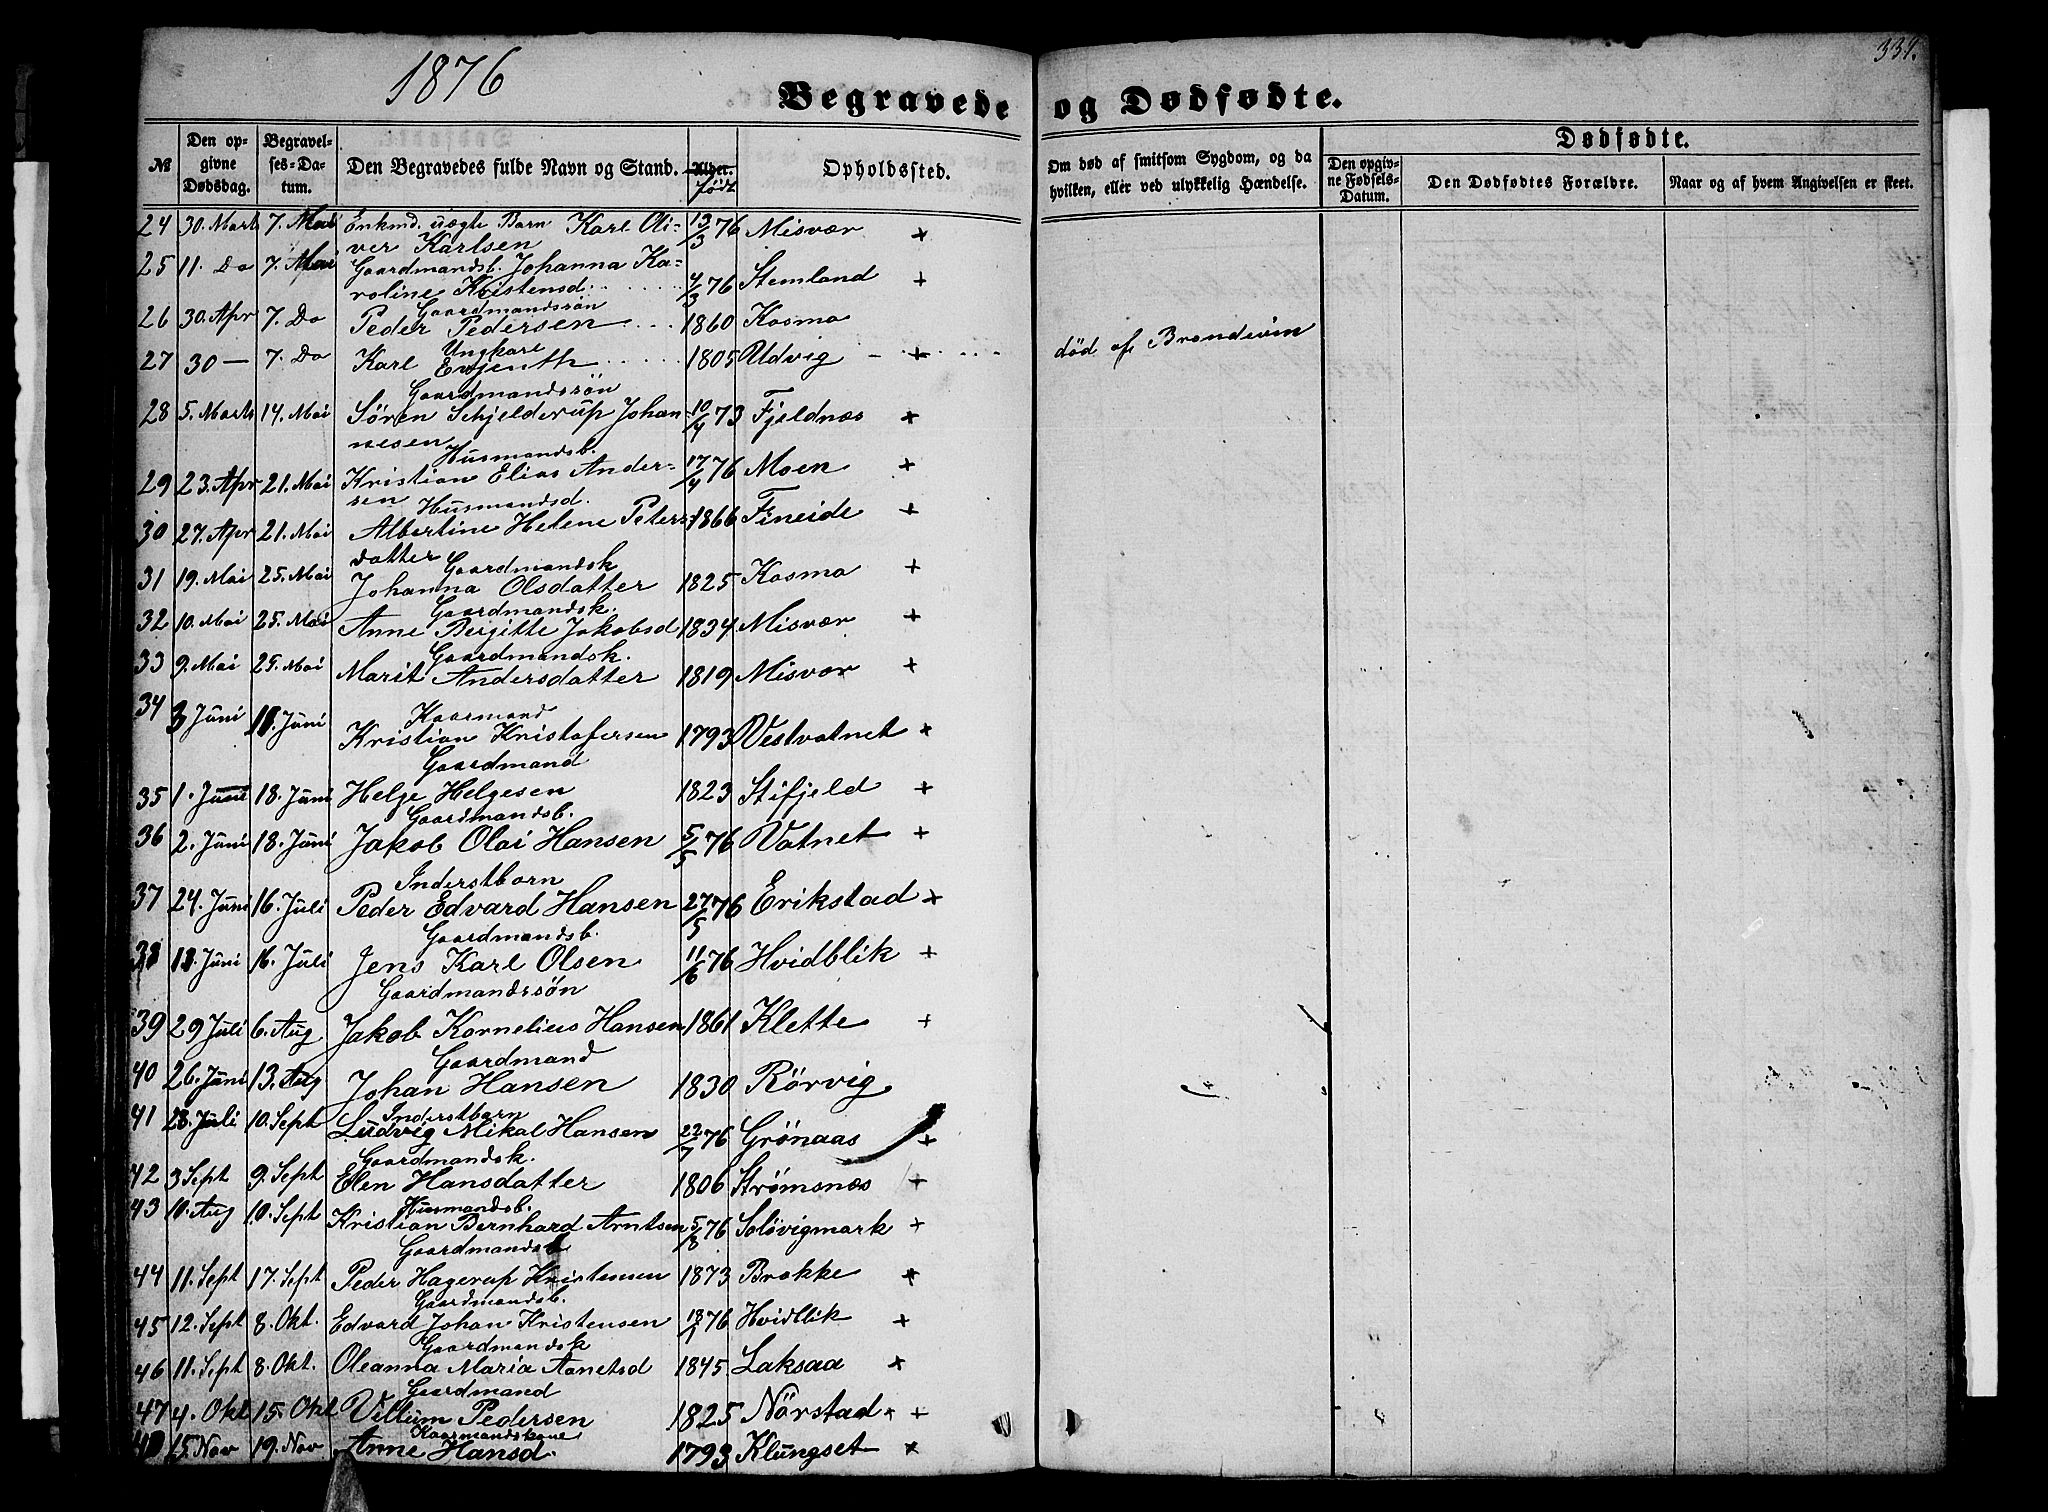 1876
Begravede og Dødfødte.
339.
Dødfødte.
№
Den op-
givne
Dødsdag.
Begravel-
ses-Da-
tum.
Den Begravedes fulde Navn og Stand.
Alder.
født
Opholdssted.
Om død af smitsom Sygdom, og da
hvilken, eller ved ulykkelig Hændelse.
Den opgiv-
ne Fødsels-
Datum.
Den Dødfødtes Forældre.
Naar og af hvem Angivelsen er skeet.
24 30. Marts 7. Mai Enkmd. uægte Barn Karl Oli- 13/3 76 Misvær +
ver Karlsen
25 11. Do 7. Mai Gaardmandsb. Johanna Ka-
roline Kristensd. 4/3 76 Stemland +
Gaardmandssøn
26 30. Apr 7. Do Peder Pedersen 1860 Kosmo
Ungkarl
27 30 — 7. Do Karl Evjenth 1805 Udvig + død af Brændeviin
Gaardmandssøn
28 5. Marts 14. Mai Søren Schjelderup Johan- 10/4 73 Fjeldnæs +
nesen
Husmandsb.
29 23. Apr 21. Mai Kristian Elias Ander- 17/4 76 Moen +
sen
Husmandsd.
30 27. Apr 21. Mai Albertine Helene Peters- 1866 Fineide +
datter
Gaardmandsk
31 19. Mai 25. Mai Johanna Olsdatter 1825 Kosmo +
Gaardmandsk.
32 10. Mai 25. Mai Anne Bergitte Jakobsd 1834 Misvær +
Gaardmandsk.
33 9. Mai 25. Mai Marit Andersdatter 1819 Misvær +
Kaarmand
34 3 Juni 11. Juni Kristian Kristofersen 1793 Vestvatnet +
Gaardmand
35 1. Juni 18. Juni Helge Helgesen 1823 Stifjeld +
Gaardmandsb.
36 2. Juni 18. Juni Jakob Olai Hansen 5/5 76 Vatnet +
Inderstbarn
37 24. Juni 16. Juli Peder Edvard Hansen 27/5 76 Erikstad +
Gaardmandsb.
38 18. Juni 16. Juli Jens Karl Olsen 11/6 76 Hvidblik +
Gaardmandssøn
39 29 Juli 6. Aug Jakob Kornelius Hansen 1861 Klette +
Gaardmand
40 26. Juni 13. Aug Johan Hansen 1830 Rörvig
Inderstbarn
41 23. Juli 10. Sept Ludvig Mikal Hansen 22/7 76 Grönaas +
Gaardmandsk.
42 3 Sept 9. Sept Elen Hansdatter 1806 Strømsnæs +
Husmandsb.
43 11. Aug 10. Sept Kristian Bernhard Arntsen 5/8 76 Solövigmark +
Gaardmandsb
44 11. Sept 17. Sept Peder Hagerup Kristensen 1873 Brekke +
Gaardmandsb.
45 12. Sept 8. Okt. Edvard Johan Kristensen 18/1 76 Hvidblik +
Gaardmandsk
46 11. Sept 8. Okt. Oleanna Maria Aanetsd 1845 Laksaa +
Gaardmand
47 4. Okt 15. Okt Villum Pedersen 1825 Nörstad +
Kaarmandskone
48 15. Nov 19. Nov Anne Hansd. 1793 Klungset +